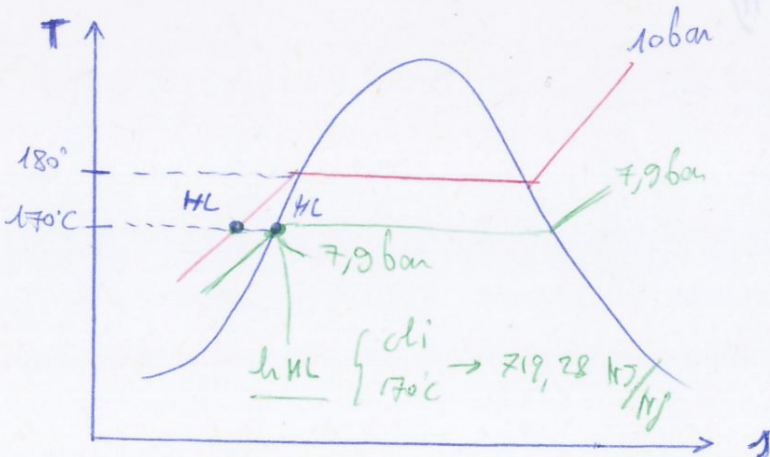 T
10 bar
180°
7,9 bar
HL
HL
170°C
7,9 bar
hHL { chi
170°C → 719,28 kJ/kg
s